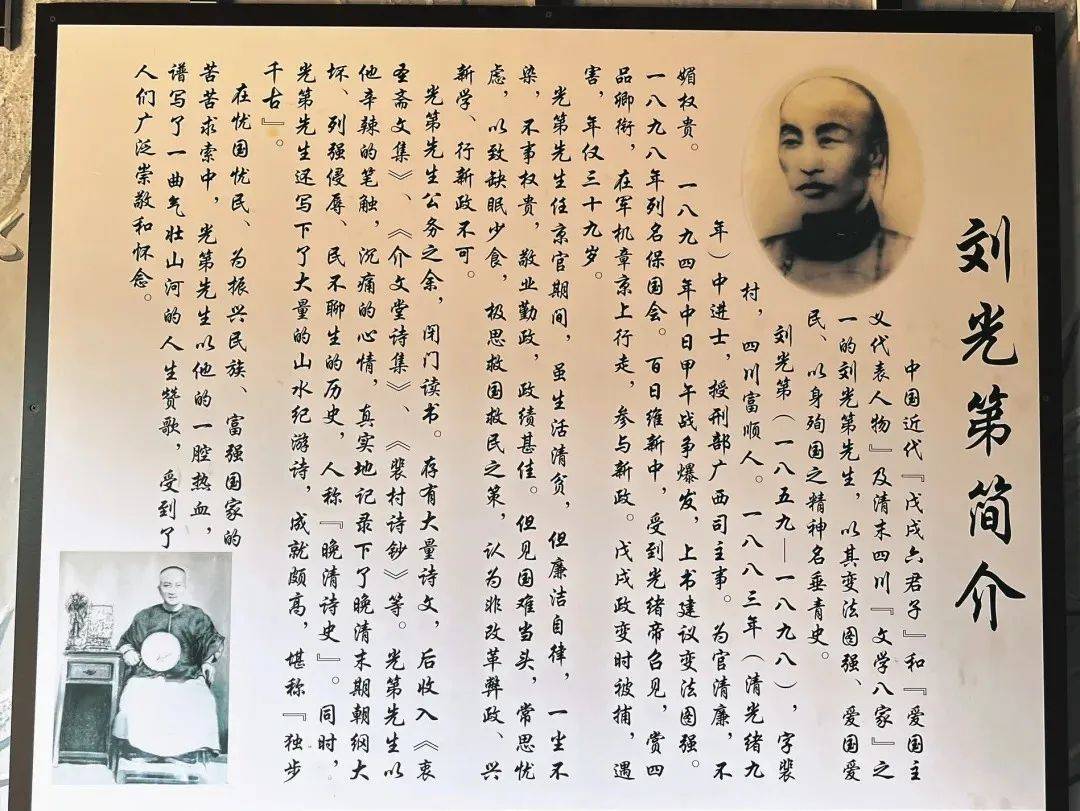 刘光第简介
中国近代『戊戌六君子』和『爱国主
义代表人物』及清末四川『文学八家』之
一的刘光第先生，以其变法图强、爱国爱
民、以身殉国之精神名垂青史。
刘光第（一八五九—一八九八），字裴
村，四川富顺人。一八八三年（清光绪九
年）中进士，授刑部广西司主事。为官清廉，不
媚权贵。一八九四年中日甲午战争爆发，上书建议变法图强。
一八九八年列名保国会。百日维新中，受到光绪帝召见，赏四
品卿衔，在军机章京上行走，参与新政。戊戌政变时被捕，遇
害，年仅三十九岁。
光第先生任京官期间，虽生活清贫，但廉洁自律，一尘不
染，不事权贵，敬业勤政，政绩甚佳。但见国难当头，常思忧
虑，以致缺眠少食，极思救国救民之策，认为非改革弊政、兴
新学、行新政不可。
光第先生公务之余，闭门读书。存有大量诗文，后收入《衷
圣斋文集》、《介文堂诗集》、《裴村诗钞》等。光第先生以
他辛辣的笔触，沉痛的心情，真实地记录下了晚清末期朝纲大
坏、列强侵辱、民不聊生的历史，人称『晚清诗史』。同时，
光第先生还写下了大量的山水纪游诗，成就颇高，堪称『独步
千古』。
在忧国忧民、为振兴民族、富强国家的
苦苦求索中，光第先生以他的一腔热血，
谱写了一曲气壮山河的人生赞歌，受到了
人们广泛崇敬和怀念。